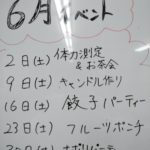 6月イベント
2日(土) 体力測定
&お茶会
9日(土) キャンドル作り
16日(土) 餃子パーティー
23日(土) フルーツポンチ